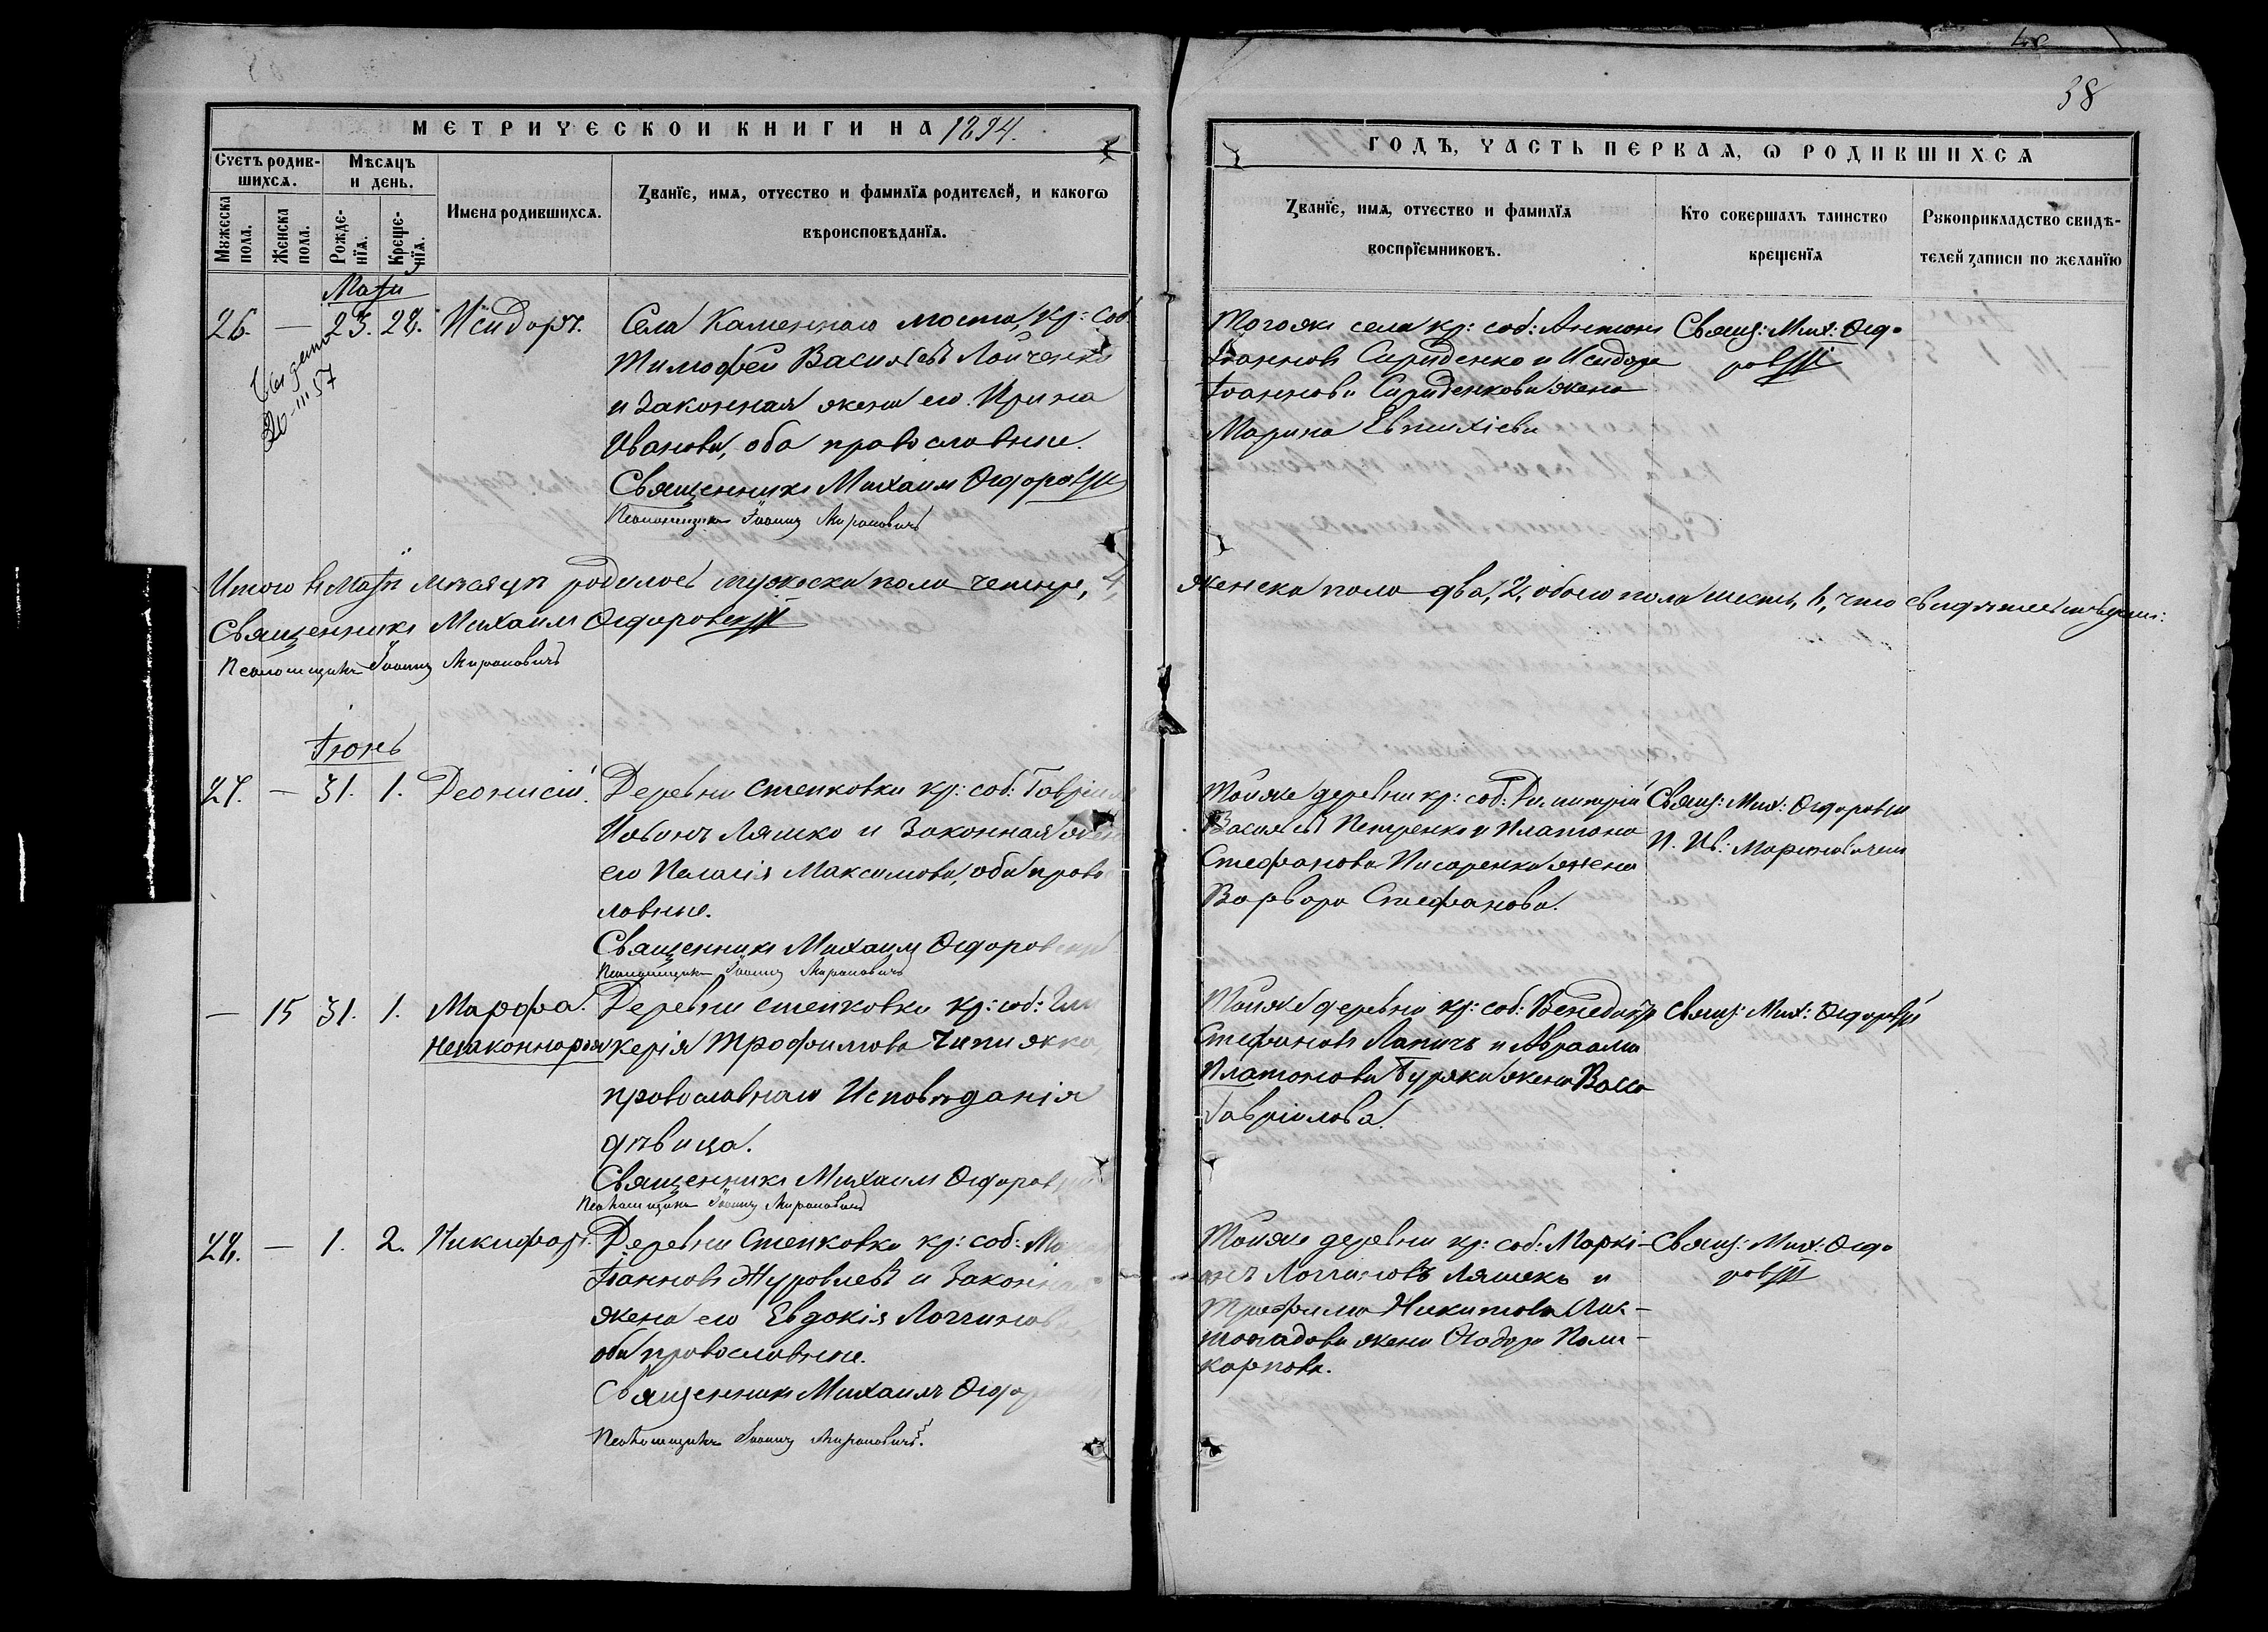 38
МЕТРИЧЕСКОЙ КНИГИ НА 1894.
ГОДЪ, ЧАСТЬ ПЕРВАЯ, Ѡ РОДИВШИХСЯ
Счетъ родив-
шихся.
Мѣсяцъ
и день.
Мужеска
пола.
Женска
пола.
Рожде-
нїя.
Креще-
нїя.
Имена родившихся.
Званїе, имя, отчество и фамилїя родителей, и какогѡ
вѣроисповѣданїя.
Званїе, имя, отчество и фамилїя
воспрїемниковъ.
Кто совершалъ таинство
крещенїя
Рукоприкладство свидѣ-
телей записи по желанїю
Май
26. — 23. 28. Исидоръ.
Села Каменнаго моста, кр: соб:
Тимофей Васильевъ
и законная жена его Ирина
Иванова, оба православные.
Священникъ Михаилъ Ѳедоровскій
Псаломщикъ Іоаннъ Мироновичъ
Тогоже села кр: соб: Антонъ
Іоанновъ Спириденко и Исидора
Іоаннова Спириденкова жена
Марина Евтихіева
Свящ: Мих: Ѳедо-
ровскій
Итого въ Маѣ мѣсяцѣ родилось мужеска пола четыре, 4,
женска пола два, 2, обоего пола шесть, 6, что
Священникъ Михаилъ Ѳедоровскій
Псаломщикъ Іоаннъ Мироновичъ
Іюнь
27. — 31. 1. Деонисій.
Деревни Степковки кр: соб: Гавріилъ
Ивановъ Ляшко и законная жена
его Пелагія Максимова, оба правос
лавные.
Священникъ Михаилъ Ѳедоровскій
Псаломщикъ Іоаннъ Мироновичъ
Тойже деревни кр: соб: Димитрій
Васильевъ Петренко и Платона
Стефанова Писаренка жена
Варвара Стефанова.
Свящ: Мих: Ѳедоровскій
— 15 31. 1. Марфа.
незаконнорож
Деревни Степковки кр: соб: Гли
керія Трофимова
православнаго Исповѣданія
дѣвица.
Священникъ Михаилъ Ѳедоровскій
Псаломщикъ Іоаннъ Мироновичъ
Тойже деревни кр: соб: Венедиктъ
Стефановъ Лапичъ и Авраама
Платонова Буряка жена Васса
Гавріилова.
Свящ: Мих: Ѳедоровскій
28. — 1. 2. Никифоръ.
Деревни Степковки кр: соб:
Іоанновъ Журавлевъ и законная
жена его Евдокія Логгинова,
оба православные.
Священникъ Михаилъ
Псаломщикъ Іоаннъ Мироновичъ.
Тойже деревни кр: соб: Маркі-
анъ Логгиновъ Ляшекъ и
Трофима Никитова Лис-
топадова жена Ѳеодора Поли-
карпова.
Свящ: Мих: Ѳедо
ровскій